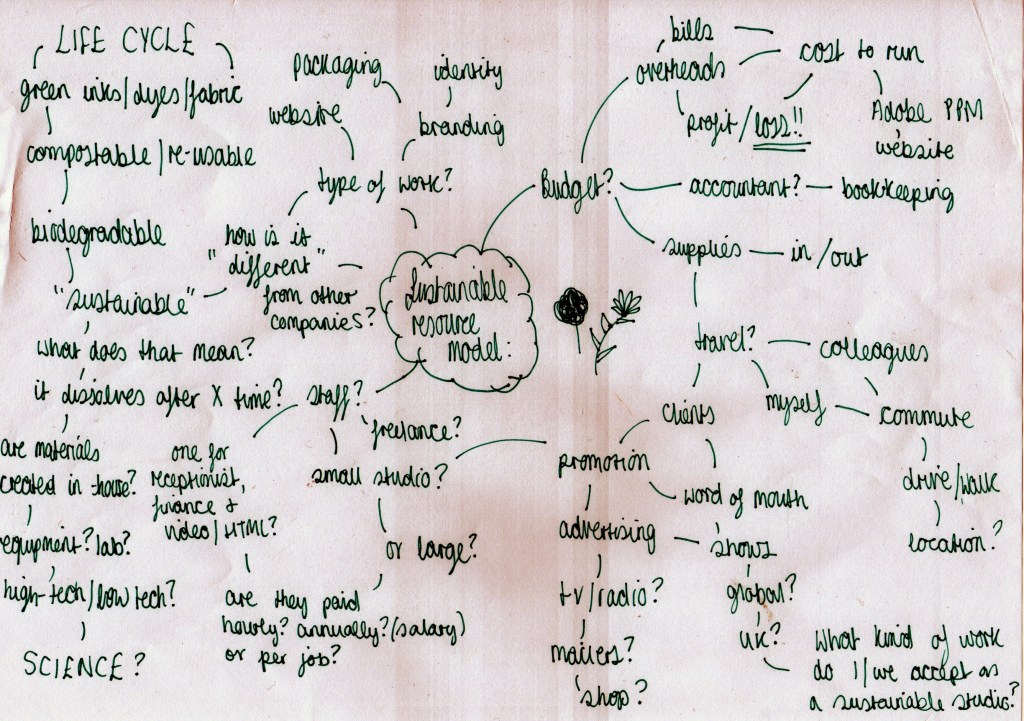 LIFE CYCLE
green inks/dyes/fabric
compostable/re-usable
biodegradable
"sustainable"
what does that mean?
it dissolves after X time?
are materials
created in-house?
equipment? lab?
high-tech/low tech?
SCIENCE?
packaging
identity
website
branding
type of work?
"how is it
different"
from other
companies?
Sustainable
resource
model:
staff?
freelance?
one for
receptionist,
finance +
video/HTML?
small studio?
or large?
are they paid
hourly? annually? (salary)
or per job?
Budget?
bills
overheads
cost to run
profit/loss!!
Adobe PPM
website
accountant? – bookkeeping
supplies – in/out
travel?
colleagues
clients
myself
commute
drive/walk
location?
promotion
word of mouth
advertising
shows
tv/radio?
global?
mailers?
UK?
shop?
What kind of work
do I/we accept as
a sustainable studio?